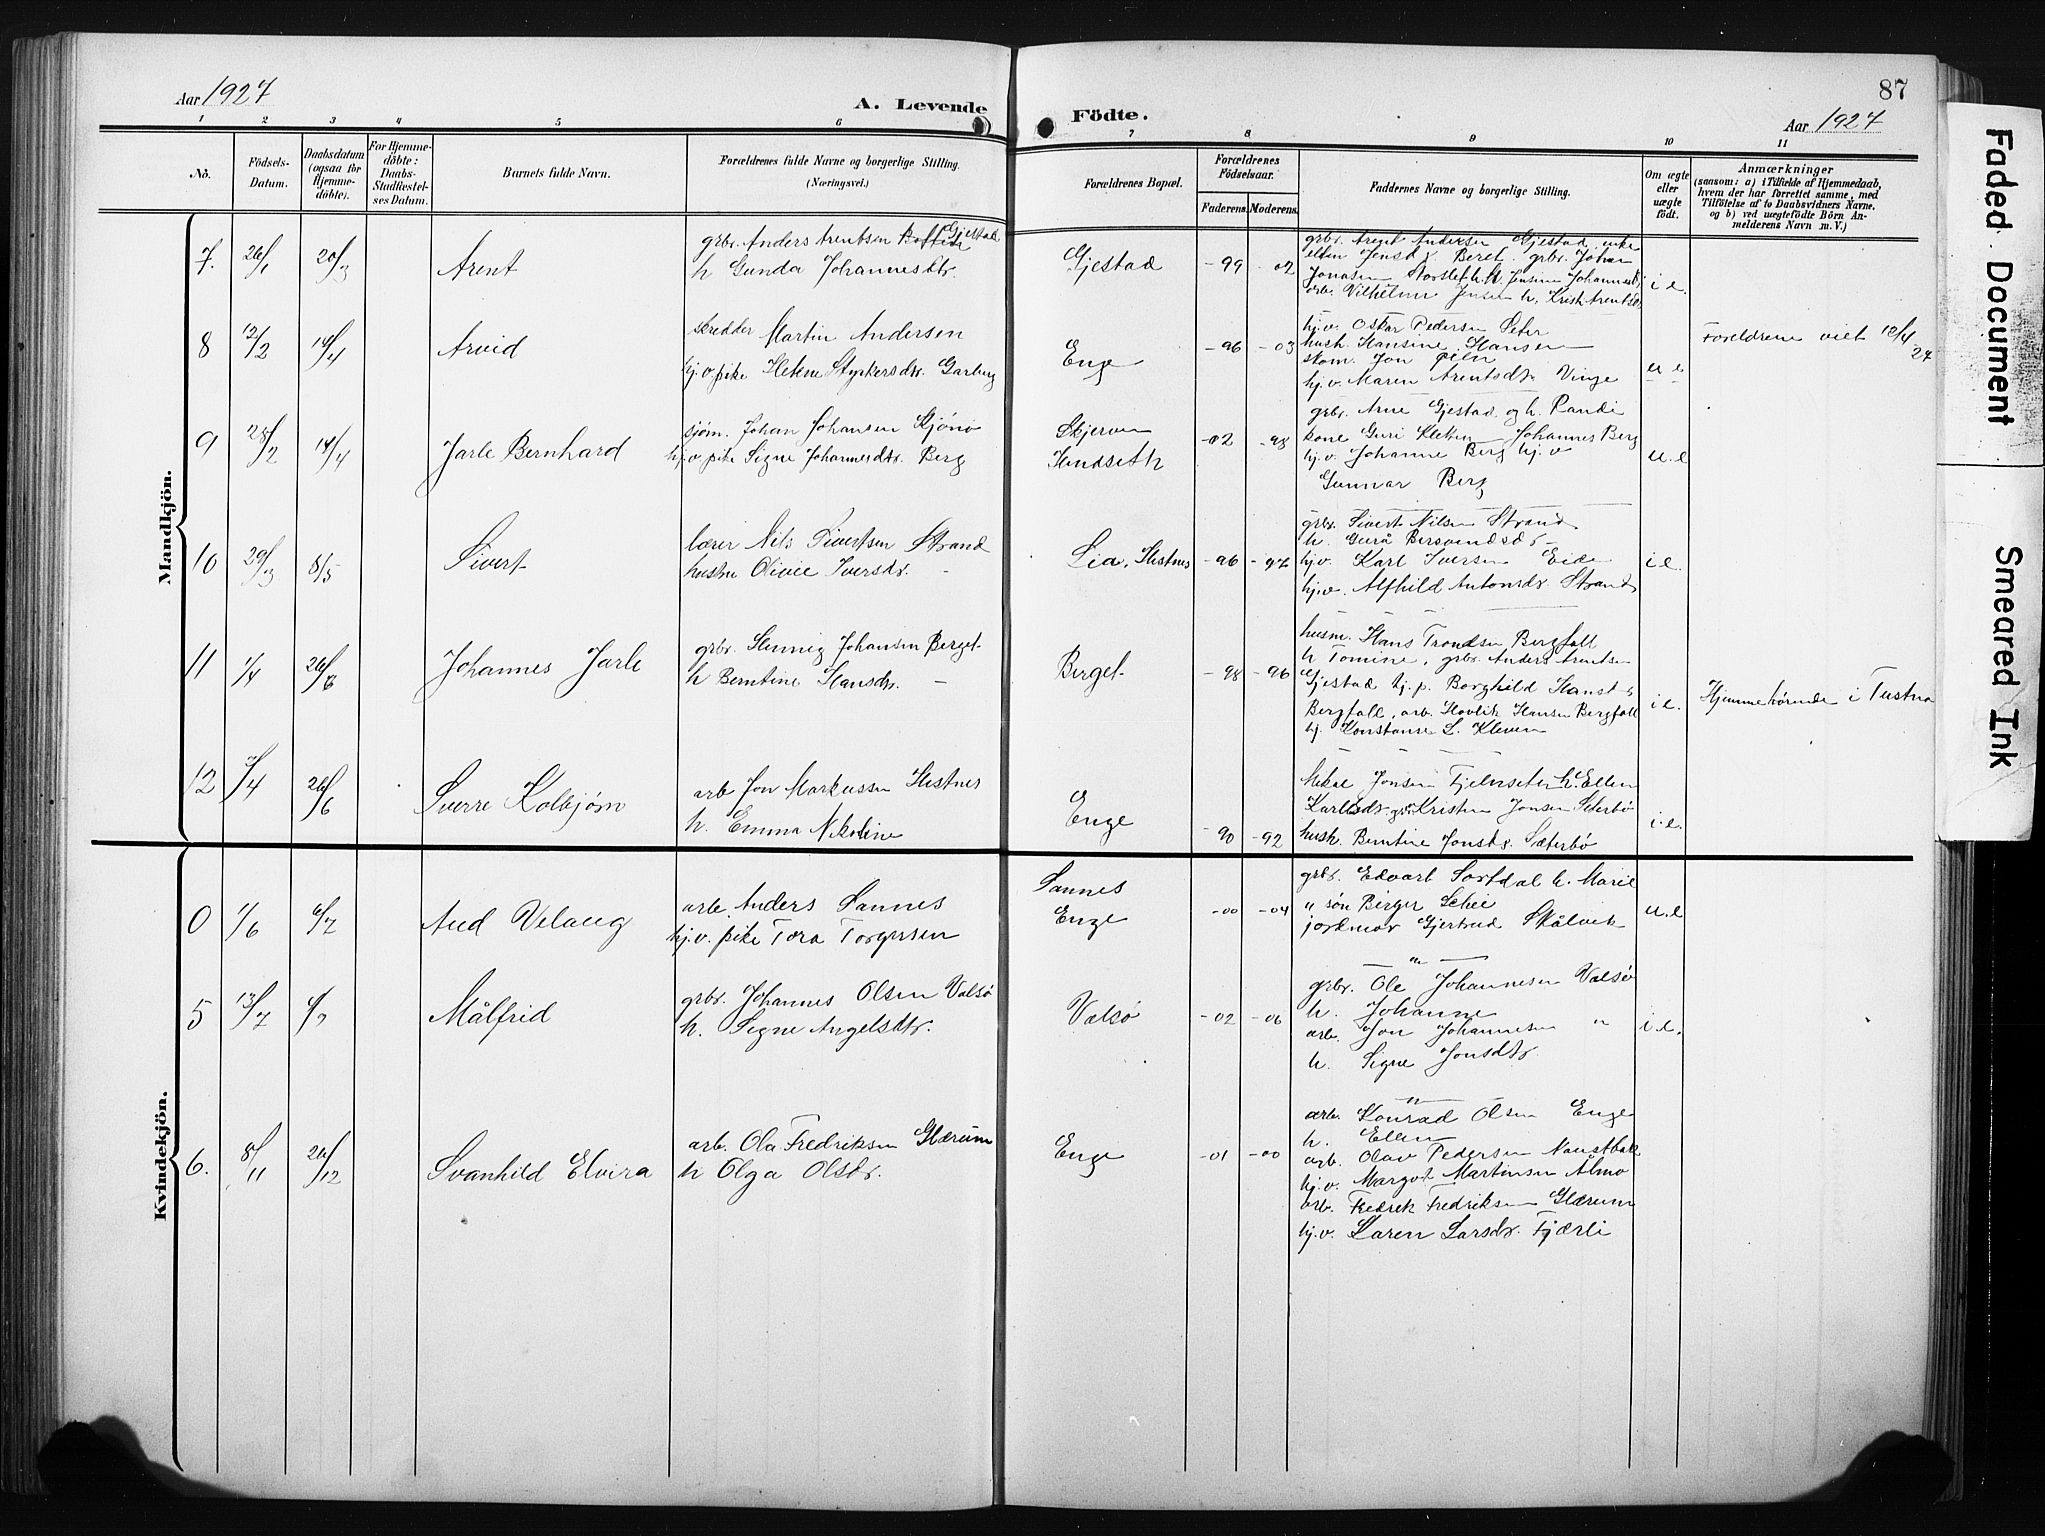 87
Aar 1927
A. Levende
Födte.
Aar 1927
1 2 3 4 5 6 7 8 9 10 11
No.
Födsels-
Datum.
Daabsdatum
(ogsaa for
Hjemme-
döbte).
For Hjemme-
döbte:
Daabs-
Stadfæstel-
ses Datum.
Barnets fulde Navn.
Forældrenes fulde Navne og borgerlige Stilling.
(Næringsvei.)
Forældrenes Bopæl.
Forældrenes
Födselsaar.
Faderens. Moderens.
Faddernes Navne og borgerlige Stilling.
Om ægte
eller
uægte
födt.
Anmærkninger
(saasom: a) i Tilfælde af Hjemmedaab,
hvem der har forrettet samme, med
Tilföielse af to Daabsvidners Navne.
og b) ved uægtefödte Börn An-
melderens Navn m. V.)
Mandkjön.
7. 26/1 20/3
Arent
grbr. Anders Arentsen Gjestad
h Gunda Johannesdtr.
Gjestad
-99 -02
grbr. Arent Andersen Gjestad, enke
Ellen Jensdr Beret, grbr. Johan
Jonasen h. Jensine Johannesd
arb. Vilhelm Jensen h. Krist. Arentsd
i e.
8 12/2 14/4
Arvid
skredder Martin Andersen
hj.v pike Helene Styrkersdr. Garberg
Enge
-96 -03
hj.v. Oskar Pedersen Seter
hush. Hansine Hansen
skom. Jon
hj.v. Maren Arentsdr Vinge
u e
Foreldrene viet 12/4
27
9 28/2 14/4
Jarle Bernhard
sjøm. Johan Johansen
hj.v pike Signe Johannesdtr. Berg
Skjerven
Handseth
-02 -98
grbr. Arne Gjestad og h. Randi
kone Guri Kletten Johannes Berg
hj.v. Johanne Berg hj.v
Gunnar Berg
u.e
10 29/3 8/5
Sivert
lærer Nils Sivertsen Strand
hustru Olivie Iversdr. -
Lia, Hestnes
-96 -97
grbr Sivert Nilsen Strand
h. Gurå Bersvendsdr -
hj.v. Karl Iversen Eide
hj.v. Alfhild Antonsdr Strand
i e.
11 1/4 26/6
Johannes Jarle
grbr. Henning Johansen Berget
h Berntine Hansdr. -
Berget
-98 -96
husm. Hans Trondsen Bergfall
h Tomine, grbr. Anders Arentsen
Gjestad hj.p. Borghild Hansd
Bergfall, arb. Havlik Hansen Bergfall
hj. Konstanse L. Kleven
i e.
Hjemmehørende i Tustna
12 7/4 26/6
Sverre Kolbjørn
arb Jon Markussen Hestnes
h. Emma Nikoline
Enge
-90 -92
Mekal Jonsen Fjelnseter h. Ellen
Karlsdr grbr Kristen Jonsen Seterbø
hush. Berntine Jonsdr Sæterbø
i.e.
Kvindekjön.
0 1/6 6/7
Aud Velaug
arb. Anders Sannes
hj.v. pike Tora Torgersen
Sannes
Enge
-00 -04
grbr. Edvart Sortdal h. Marie
" søn Birger Schei
jordmor Gjertrud Skålvik
u.e
5 13/7
Målfrid
grbr. Johannes Olsen Valsø
h. Signe Angelsdtr.
Valsø
-02 -06
grbr. Ole Johannesen Valsø
h. Johanne
arb. Jon Johannesen "
h. Signe Jonsdtr
i.e.
6. 8/11 26/12
Svanhild Elvira
arb. Ola Fredriksen Glærum
h Olga Olsdr.
Enge
-01 -00
arb. Konrad Olsen Enge
h. Ellen
arb. Olav Pedersen Naustbak
hj.v. Margot Martinsen Almo
arb. Fredrik Fredriksen Glærum
hj.v. Karen Larsdr. Fjærli
Faded Document
Smeared Ink